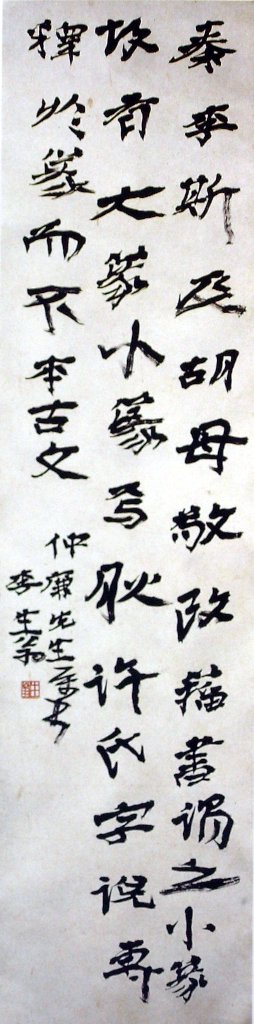 秦李斯及胡母敬改籀書謂之小篆
故有大篆小篆焉耿許氏字說專
釋於篆而不本古文
仲廉先生屬書
李生翁